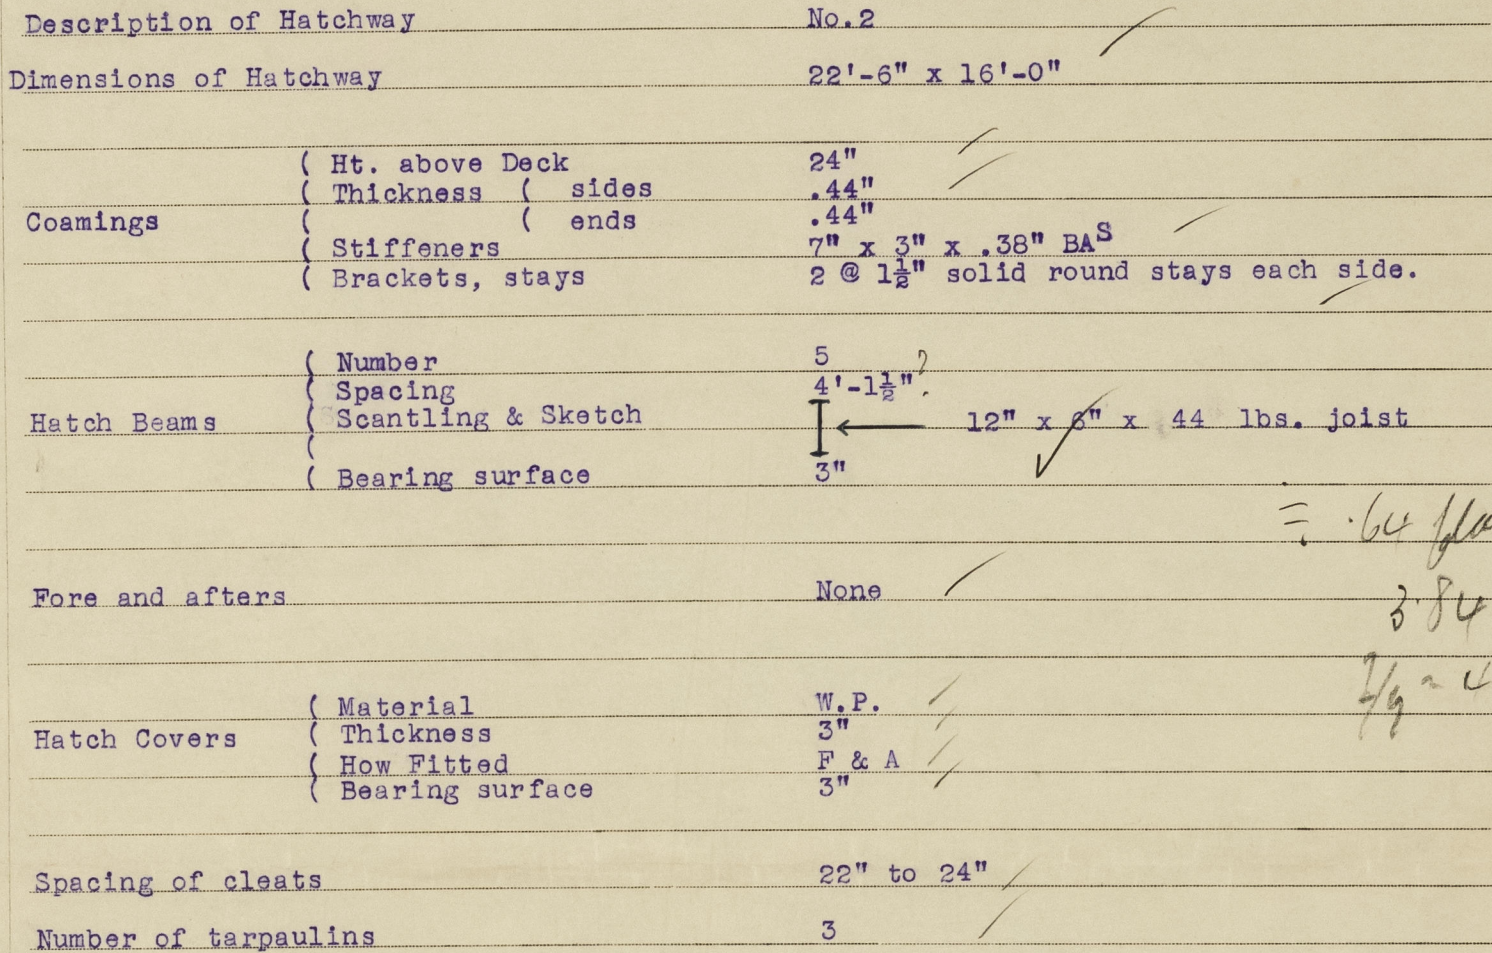 Description of Hatchway No.2
Dimensions of Hatchway 22'-6" x 16'-0"
( Ht. above Deck 24"
( Thickness ( sides .44"
Coamings ( ( ends .44"
( Stiffeners 7" x 3" x .38" BAS
( Brackets, stays 2 @ 1½" solid round stays each side.
( Number 5
( Spacing 4'-1½" ?
Hatch Beams ( Scantling & Sketch 12" x 6" x 44 lbs. joist
(
( Bearing surface 3"
= .64
Fore and afters None
3.84
( Material W.P.
Hatch Covers ( Thickness 3"
( How Fitted F & A
( Bearing surface 3"
Spacing of cleats 22" to 24"
Number of tarpaulins 3